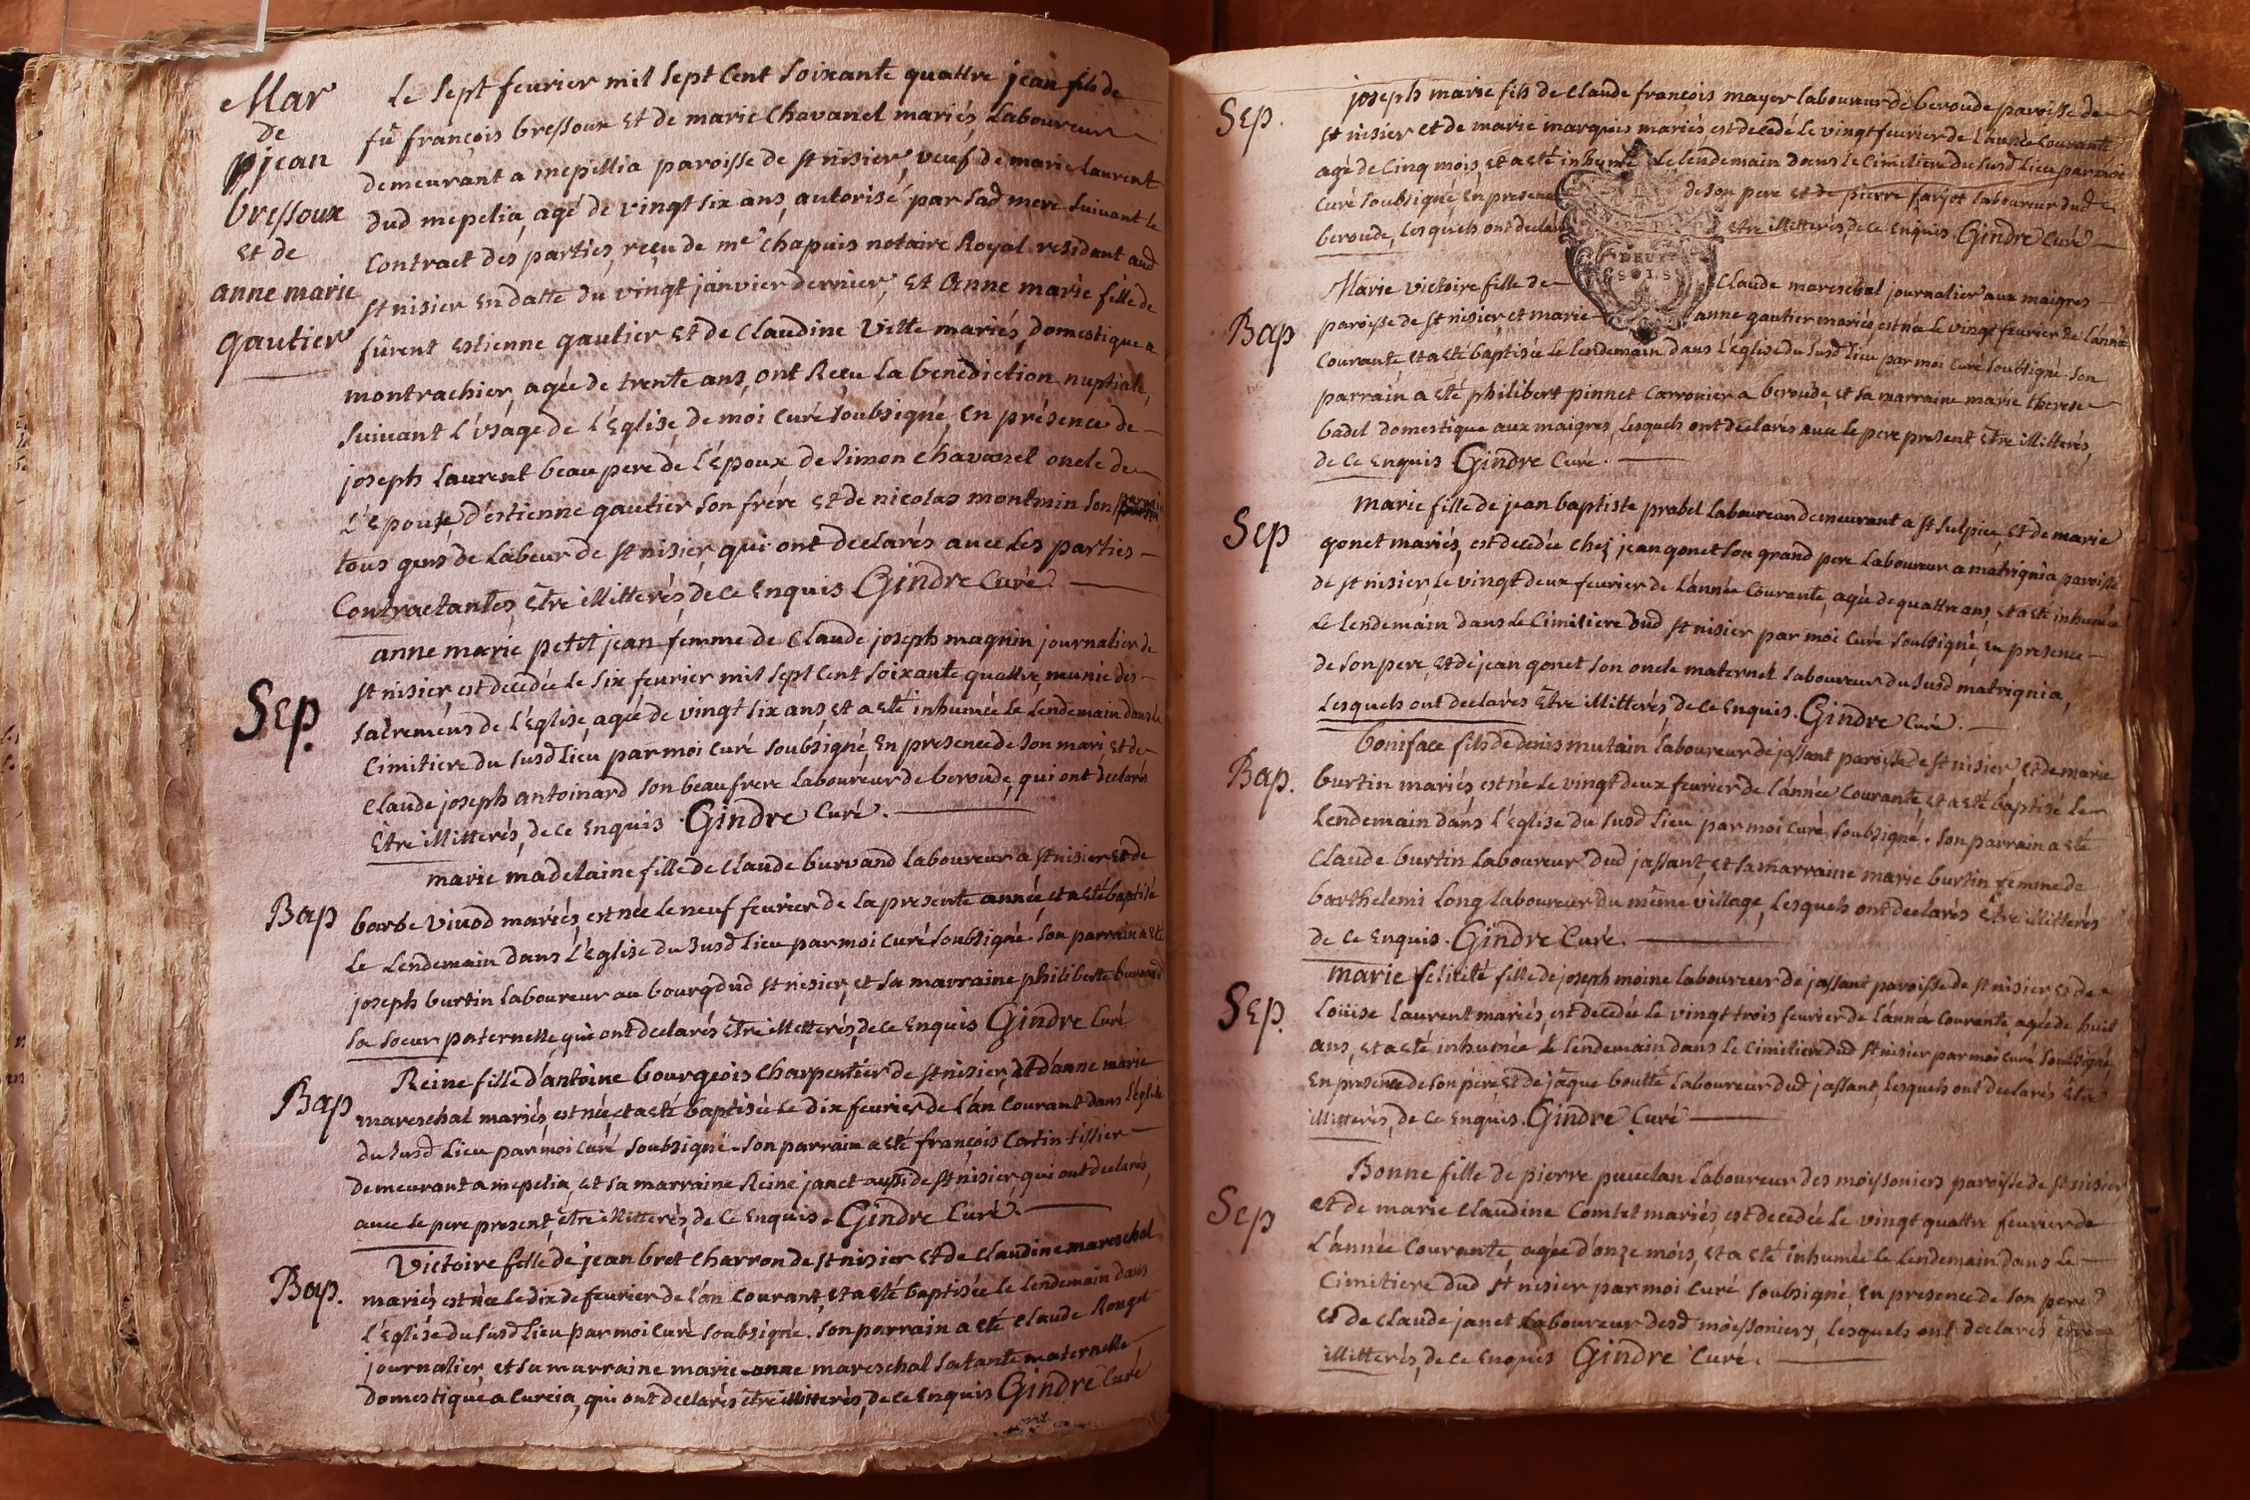 Mar
de
jean
bressoux
et de
anne marie
gautier
Le sept feurier mil sept Cent soixante quattre jean fils de
fû françois bressoux et de marie Chavanel mariés, Laboureur
demeurant a mepillia paroisse de st nisier, veuf de marie laurent
dud mepelia, agé de vingt six ans, autorisé par sad mere suivant le
Contract des parties, reçu de me Chapuis notaire Royal residant aud
st nisier en datte du vingt janvier dernier, et Anne marie fille de
fûrent estienne gautier et de Claudine Vitte mariés, domestique a
montrachier, agée de trente ans, ont Reçu La benediction nuptiale,
suivant l'usage de l'Eglise, de moi curé soubsigné, en présence de
joseph Laurent beau pere de l'époux, de simon Chavanel oncle de
l'épouse, d'estienne gautier son frére et de nicolas montmin son parrain
tous gens de Labeur de st nisier, qui ont declarés auec les parties
Contractantes, etre illitterés, de ce enquis Gindre Curé
Sep.
anne marie petit jean femme de Claude joseph magnin journalier de
st nisier, est decedée le six feurier mil sept Cent soixante quattre, munie des
sacremens de l'église, agée de vingt six ans, et a eté inhumée le lendemain dans le
Cimitiere du susd Lieu par moi Curé soubsigné, en presence de son mari et de
claude joseph antoinard son beau frere laboureur de beroude, qui ont declarés
etre illitterés, de ce enquis. Gindre Curé.
Bap
marie madelaine fille de Claude burvand laboureur a st nisier et de
barbe Vivod mariés, est née le neuf feurier de la presente année, et a eté baptisé
le Lendemain dans l'église du susd Lieu par moi curé soubsigné. son parrain a eté
joseph burtin laboureur au bourg dud st nisier, et sa marraine philiberte burvand
sa soeur paternelle, qui ont declarés etre illitterés, de ce enquis Gindre Curé
Bap
Reine fille d'antoine bourgeois Charpentier de st nisier, et d'anne marie
mareschal mariés, est née, et a eté baptisée le dix feurier de l'an courant dans l'église
du susd Lieu par moi curé soubsigné. son parrain a eté françois Catin tissier
demeurant a mepelia, et sa marraine Reine janet aussi de st nisier, qui ont declarés,
auec le pere present, etre illitterés, de ce enquis. Gindre Curé.
Bap.
Victoire fille de jean bret Charron de st nisier et de Claudine mareschal
mariés est née le dix de feurier de l'an courant, et a eté baptisée le lendemain dans
l'Eglise du susd Lieu par moi curé soubsigné. son parrain a eté Claude Rouget
journalier, et sa marraine marie anne mareschal sa tante maternelle
domestique a cureia, qui ont declarés etre illitterés, de ce enquis Gindre Curé
Sep.
joseph marie fils de Claude françois mayer laboureur de beroude paroisse de
st nisier et de marie marquis mariés est decedé le vingt feurier de l'année courante
agé de cinq mois, et a eté inhumé le lendemain dans le Cimitiere du susd Lieu par moi
curé soubsigné, en presence de son pere et de pierre farjot laboureur dud
beroude, lesquels ont declarés etre illitterés, de ce enquis. Gindre Curé
DEUX
SOLS
Bap
Marie victoire fille de Claude mareschal journalier aux maigres
paroisse de st nisier, et marie anne gautier mariés, est née le vingt feurier de l'année
Courante, et a eté baptisée le lendemain dans l'église du susd Lieu par moi curé soubsigné. son
parrain a eté philibert pinnet Carronier a beroude, et sa marraine marie therese
badel domestique aux maigres, lesquels ont declarés auec le pere present etre illitterés,
de ce enquis Gindre Curé.
Sep
Marie fille de jean baptiste prabel Laboureur demeurant a st sulpice, et de marie
gonet mariés, est decedée chez jean gonet son grand pere laboureur a matrignia paroisse
de st nisier, le vingt deux feurier de l'année courante, agée de quattre ans, et a eté inhumée
le lendemain dans le Cimitiere dud st nisier par moi curé soubsigné, en presence
de son pere, et de jean gonet son oncle maternel laboureur du susd matrignia,
Lesquels ont declarés etre illitterés de ce enquis. Gindre Curé.
Bap.
boniface fils de denis mutain laboureur de jassant paroisse de st nisier, et de marie
burtin mariés, est né le vingt deux feurier de l'année courante, et a eté baptisé le
Lendemain dans l'église du susd Lieu par moi curé soubsigné. son parrain a eté
Claude burtin laboureur dud jassant, et sa marraine marie burtin femme de
barthelemi long laboureur du même village, Lesquels ont declarés etre illitterés
de ce enquis. Gindre Curé.
Sep.
marie felicité fille de joseph moine laboureur de jassant paroisse de st nisier et de
Loüise laurent mariés, est decedée le vingt trois feurier de l'année courante, agée de huit
ans, et a eté inhumée le lendemain dans le Cimitiere dud st nisier par moi curé soubsigné
En présence de son pere, et de jâque boutte laboureur dud jassant, lesquels ont declarés etre
illitterés, de ce enquis. Gindre Curé
Sep
Bonne fille de pierre puvelan Laboureur des moissoniers paroisse de st nisier
et de marie Claudine Comtet mariés est decedée le vingt quattre feurier de
l'année courante, agée d'onze mois, et a eté inhumée le lendemain dans le
Cimitiere dud st nisier par moi Curé soubsigné, en presence de son pere
et de Claude janet laboureur desd moissoniers, lesquels ont declarés etre
illitterés, de ce enquis Gindre Curé.